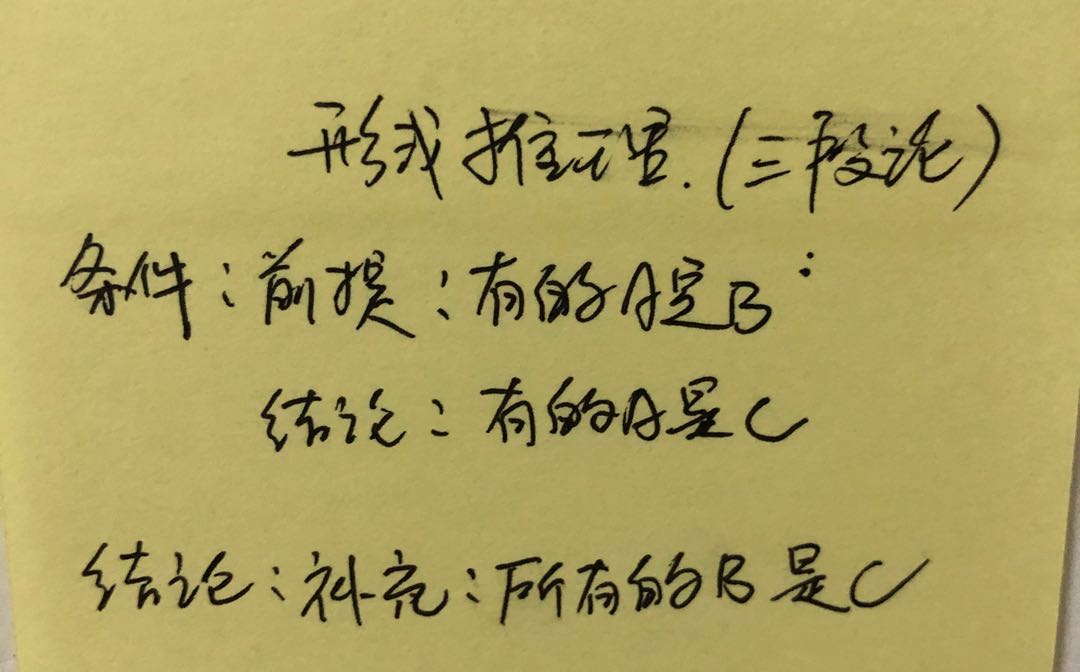 形式推理.(三段论)
条件:前提:有的A是B
结论:有的A是C
结论:补充:所有的B是C